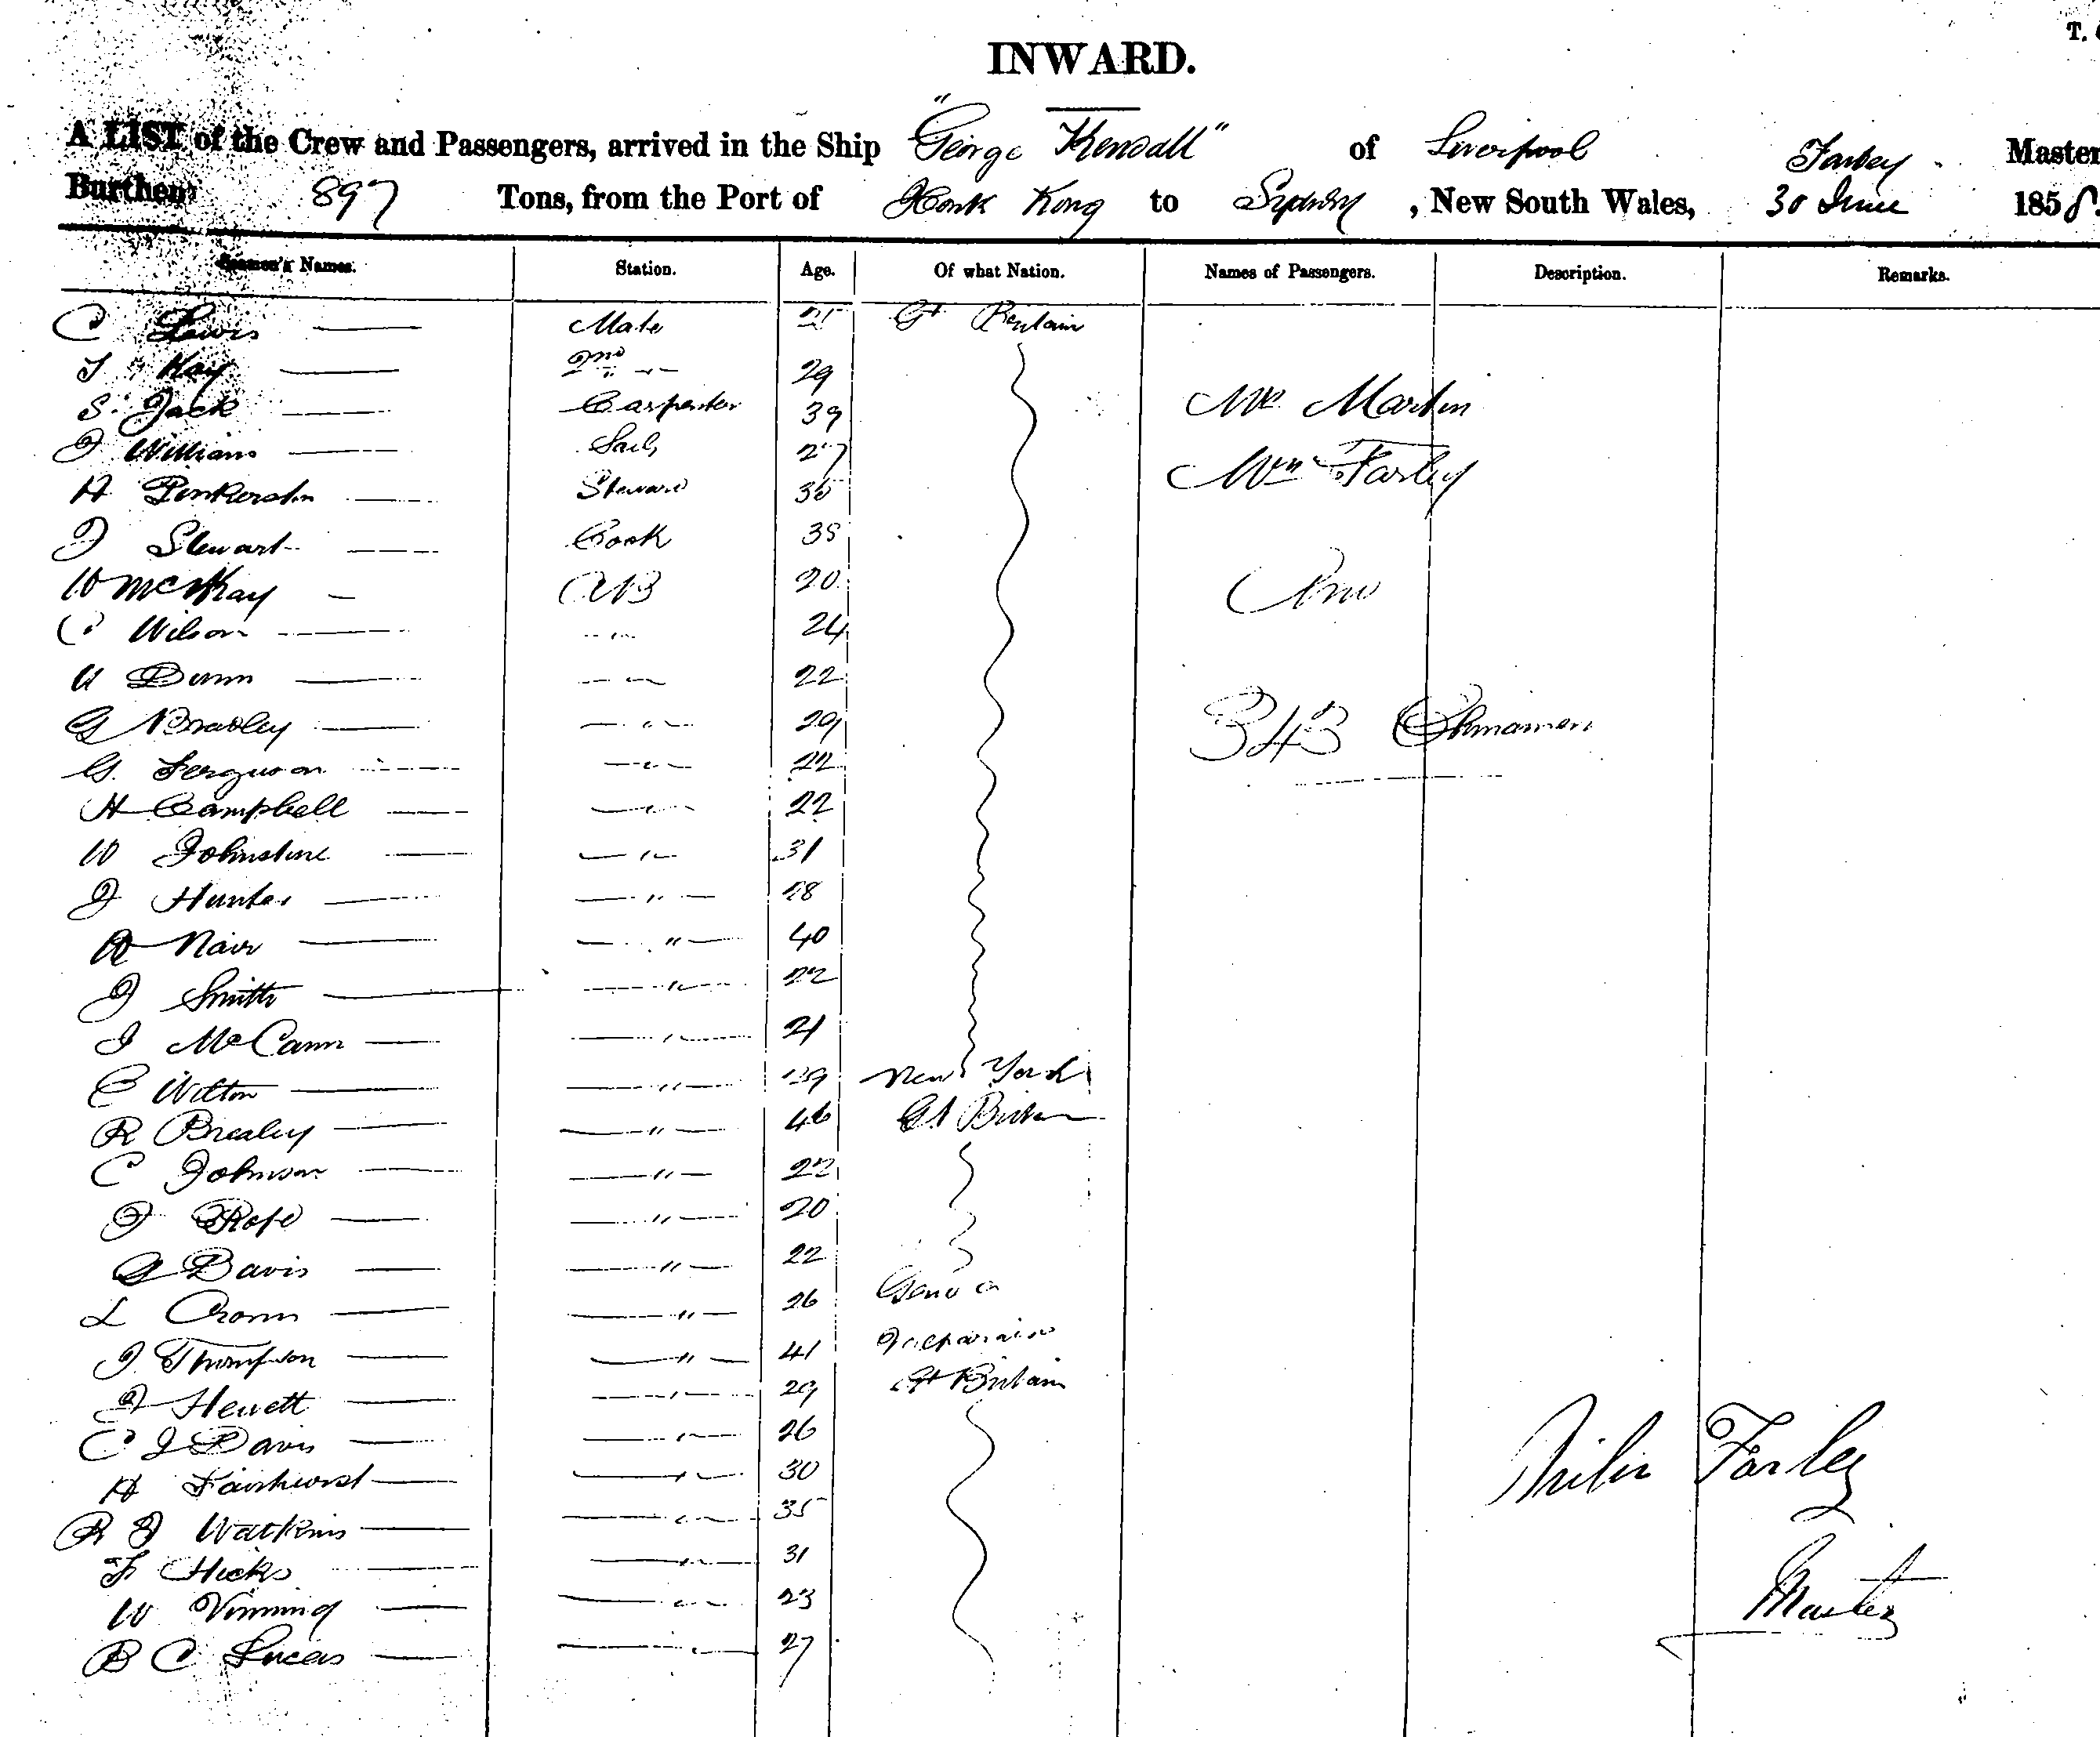 T.
INWARD.
A LIST of the Crew and Passengers, arrived in the Ship "George Kendall" of Liverpool Farley Master
Burthen 897 Tons, from the Port of Honk Kong to Sydney, New South Wales, 30 June 1858.
Seamen's Names. Station. Age. Of what Nation. Names of Passengers. Description. Remarks.
C Lewis Mate 25 Gt Britain
T Kay 2nd " 29
S. Jack Carpenter 39 Mr Martin
J Williams Sails 27
A Pinkerton Steward 36 Mrs Farley
J Stewart Cook 38
W McKay AB 20
C Wilson " 24
W Dunn " 22
G Bradley " 29 343 Chinamen
G. Ferguson " 22
H Campbell " 22
W Johnstone " 31
J Hunter " 28
R Nair " 40
J Smith " 22
J McCann " 21
E Wilton " 39 New York
R Brealey " 46 Gt Britain
C Johnson " 22
J Rofe " 20
G Davis " 22
L " 26 Genoa
J Thompson " 41 Valparaiso
J Hewett " 29 Gt Britain
C J Davis " 26
H Fairhurst " 30 Farley
R J Watkins " 35
F Hicks " 31
W Vinning " 23 Master
B C Lucas " 27